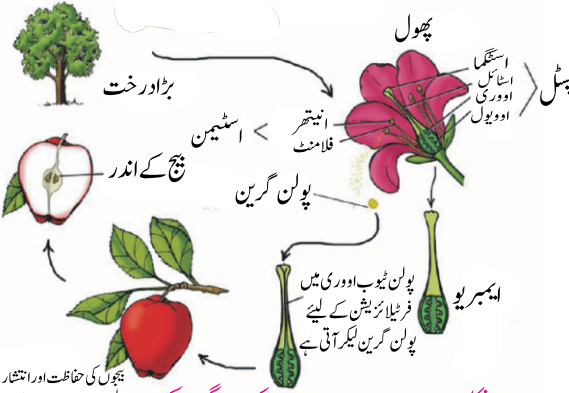 پھول
بڑا درخت
اسٹگما
اسٹائل
اووری
اوویول
پسٹل
انیتھر
فلامنٹ
اسٹیمن
بیج کے اندر
پولن گرین
ایمبریو
پولن ٹیوب اووری میں
فرٹیلائزیشن کے لیئے
پولن گرین لیکر آتی ہے
بیجوں کی حفاظت اور انتشار